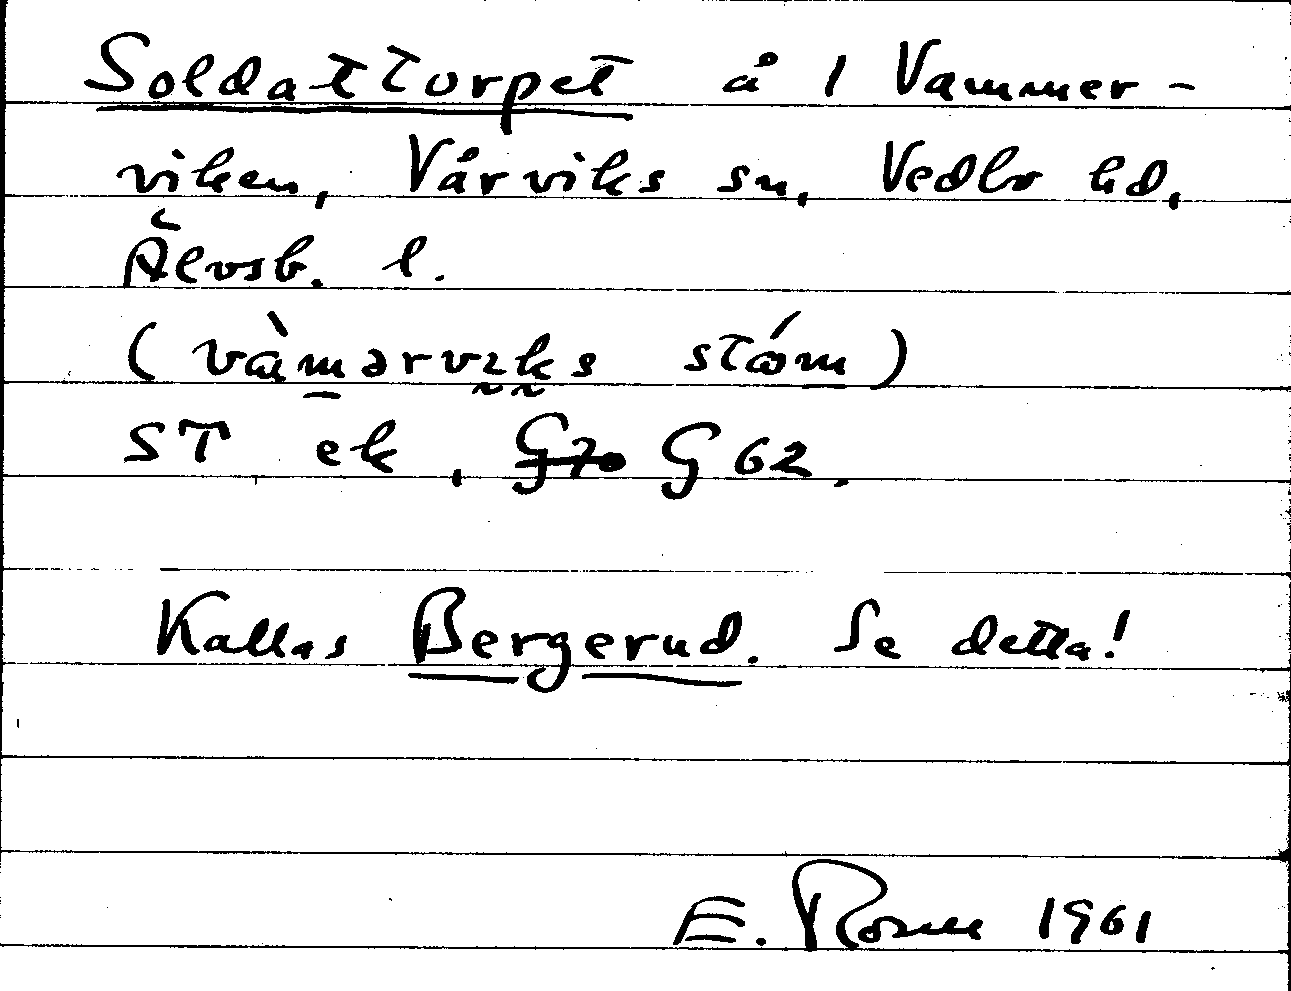 Soldattorpet å 1 Vammer-
viken, Vårviks sn, Vedbo hd,
Älvsb. l.
(vàmərvıks stóm)
ST ek, G70 G 62.
Kallas Bergerud. Se detta!
E. Rosell 1961